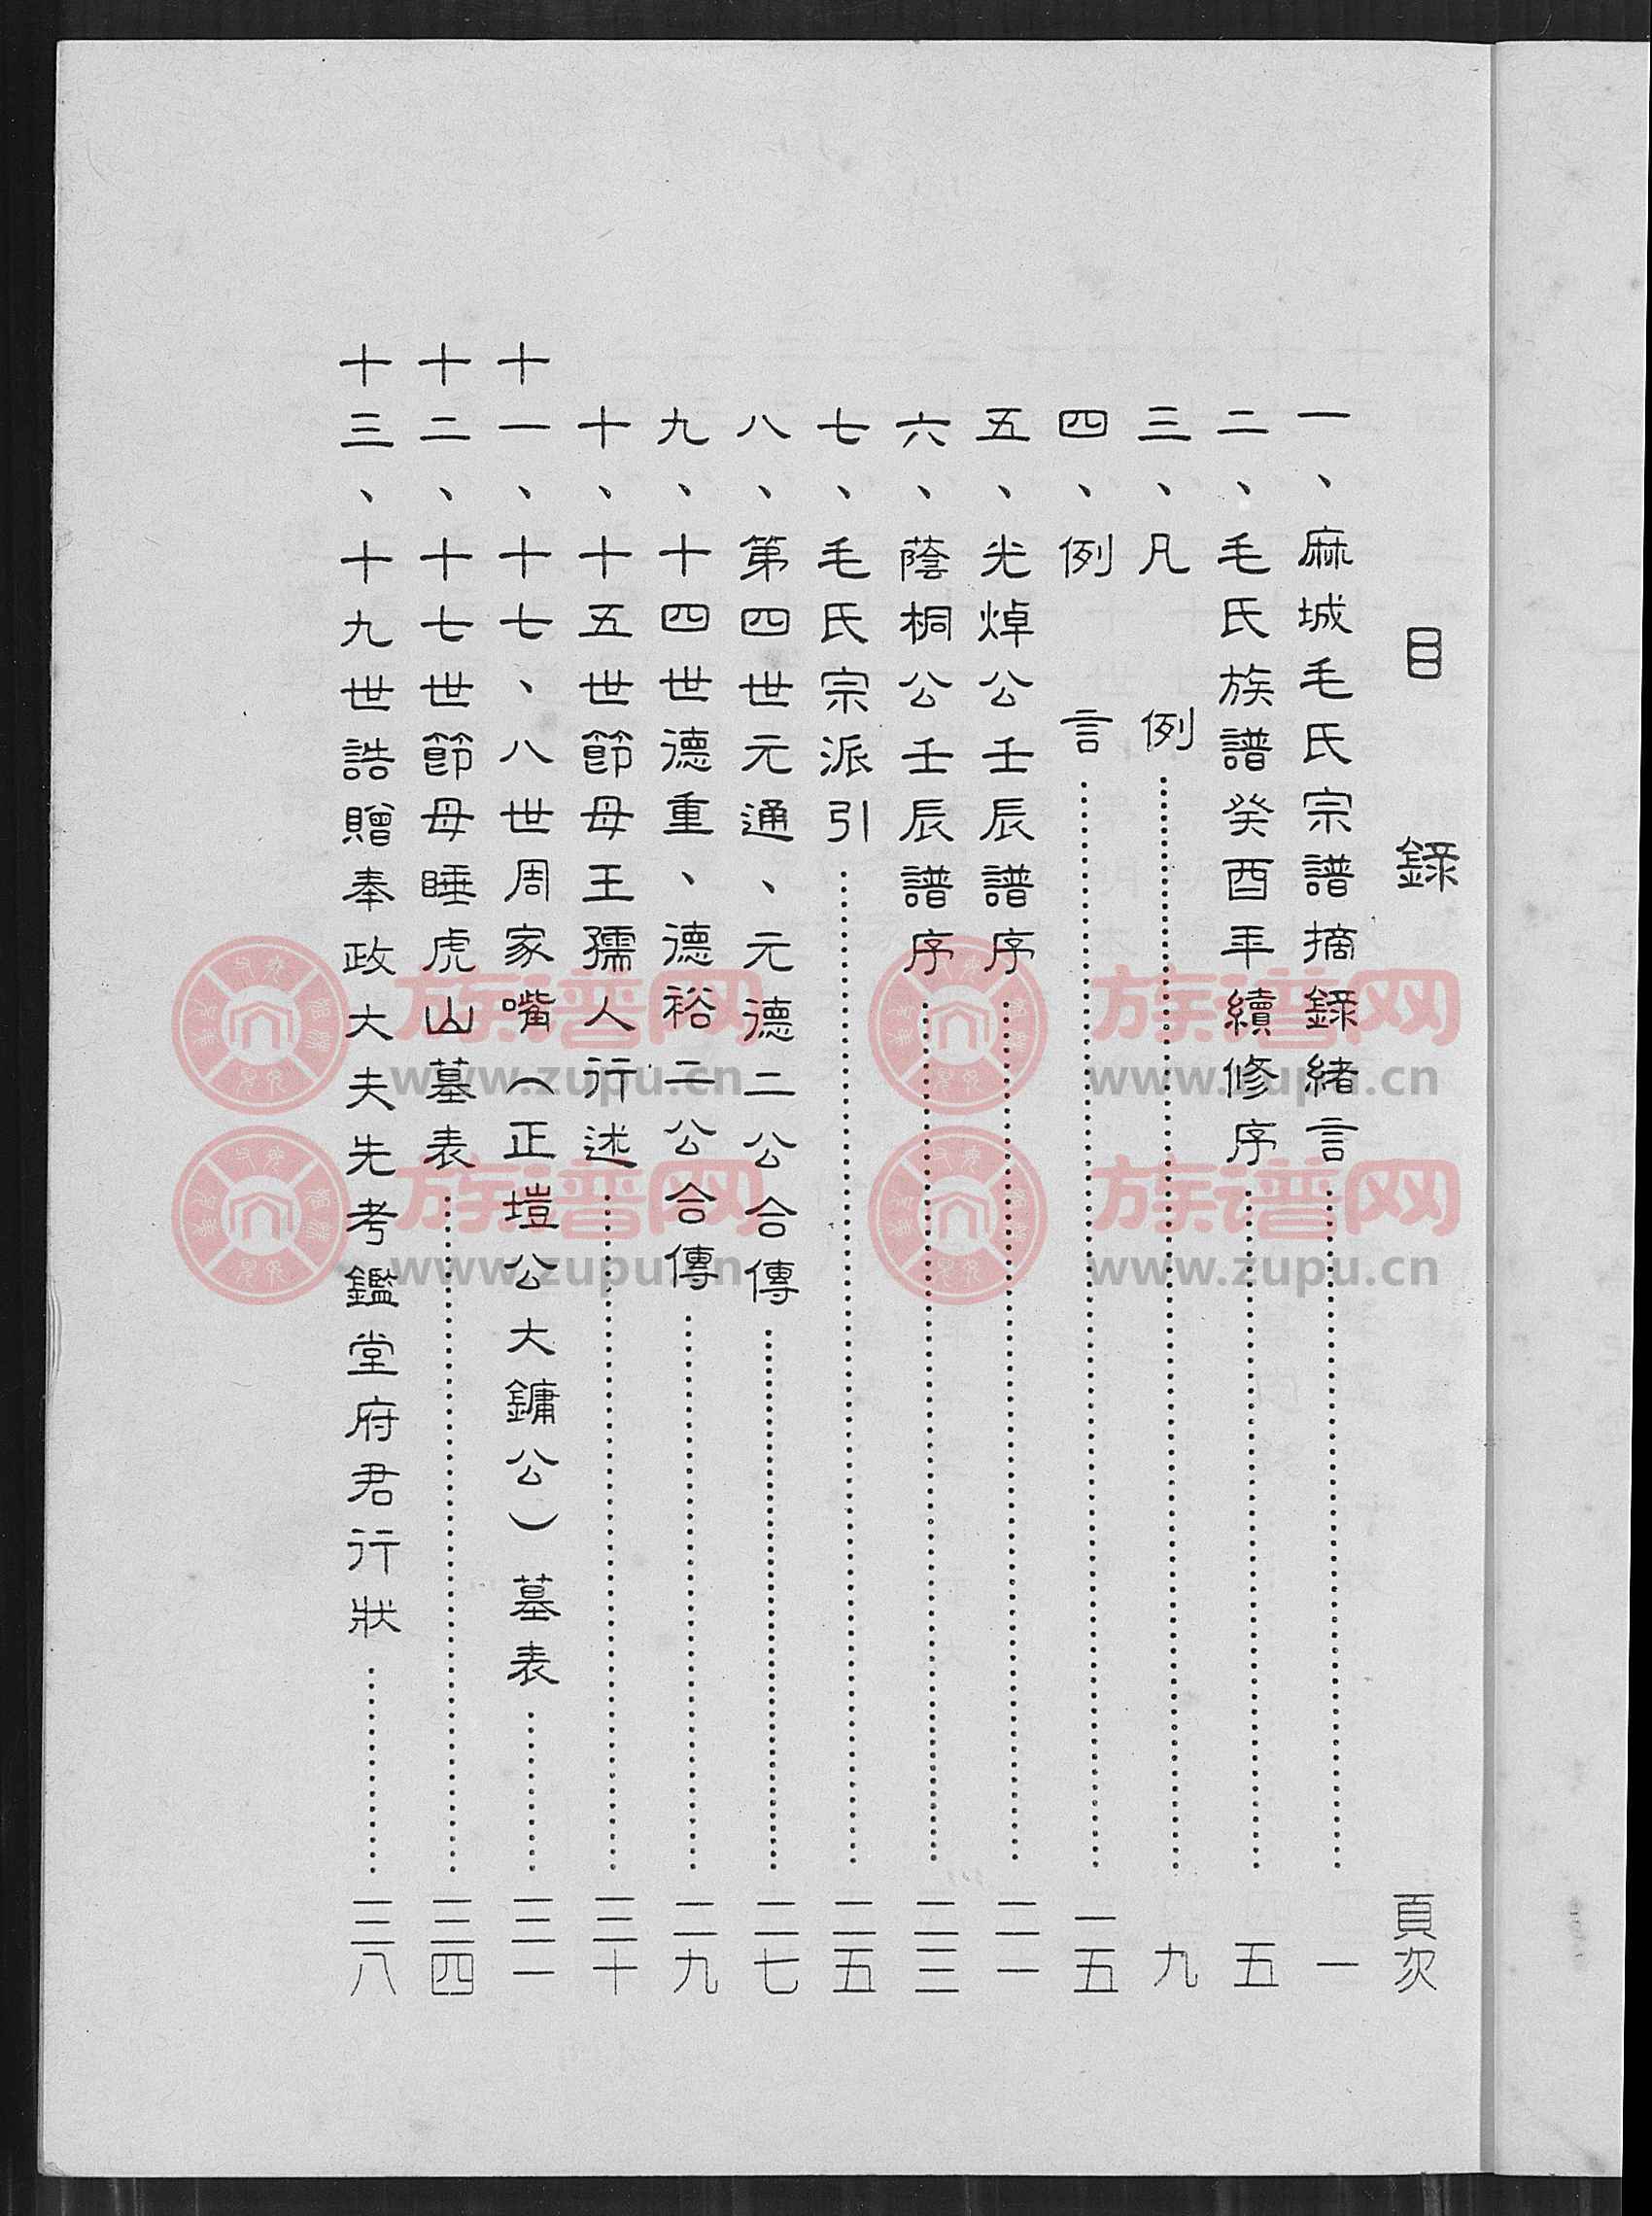 目錄 頁次
一、麻城毛氏宗譜摘錄緒言……一
二、毛氏族譜癸酉年續修序……五
三、凡例……九
四、例言……一五
五、光焯公壬辰譜序……二一
六、蔭桐公壬辰譜序……二三
七、毛氏宗派引……二五
八、第四世元通、元德二公合傳……二七
九、十四世德重、德裕二公合傳……二九
十、十五世節母王孺人行述……三十
十一、十七、八世周家嘴（正塏公大鏞公）墓表……三一
十二、十七世節母睡虎山墓表……三四
十三、十九世誥贈奉政大夫先考鑑堂府君行狀……三八
族谱网
www.zupu.cn
族谱网
www.zupu.cn
族谱网
www.zupu.cn
族谱网
www.zupu.cn